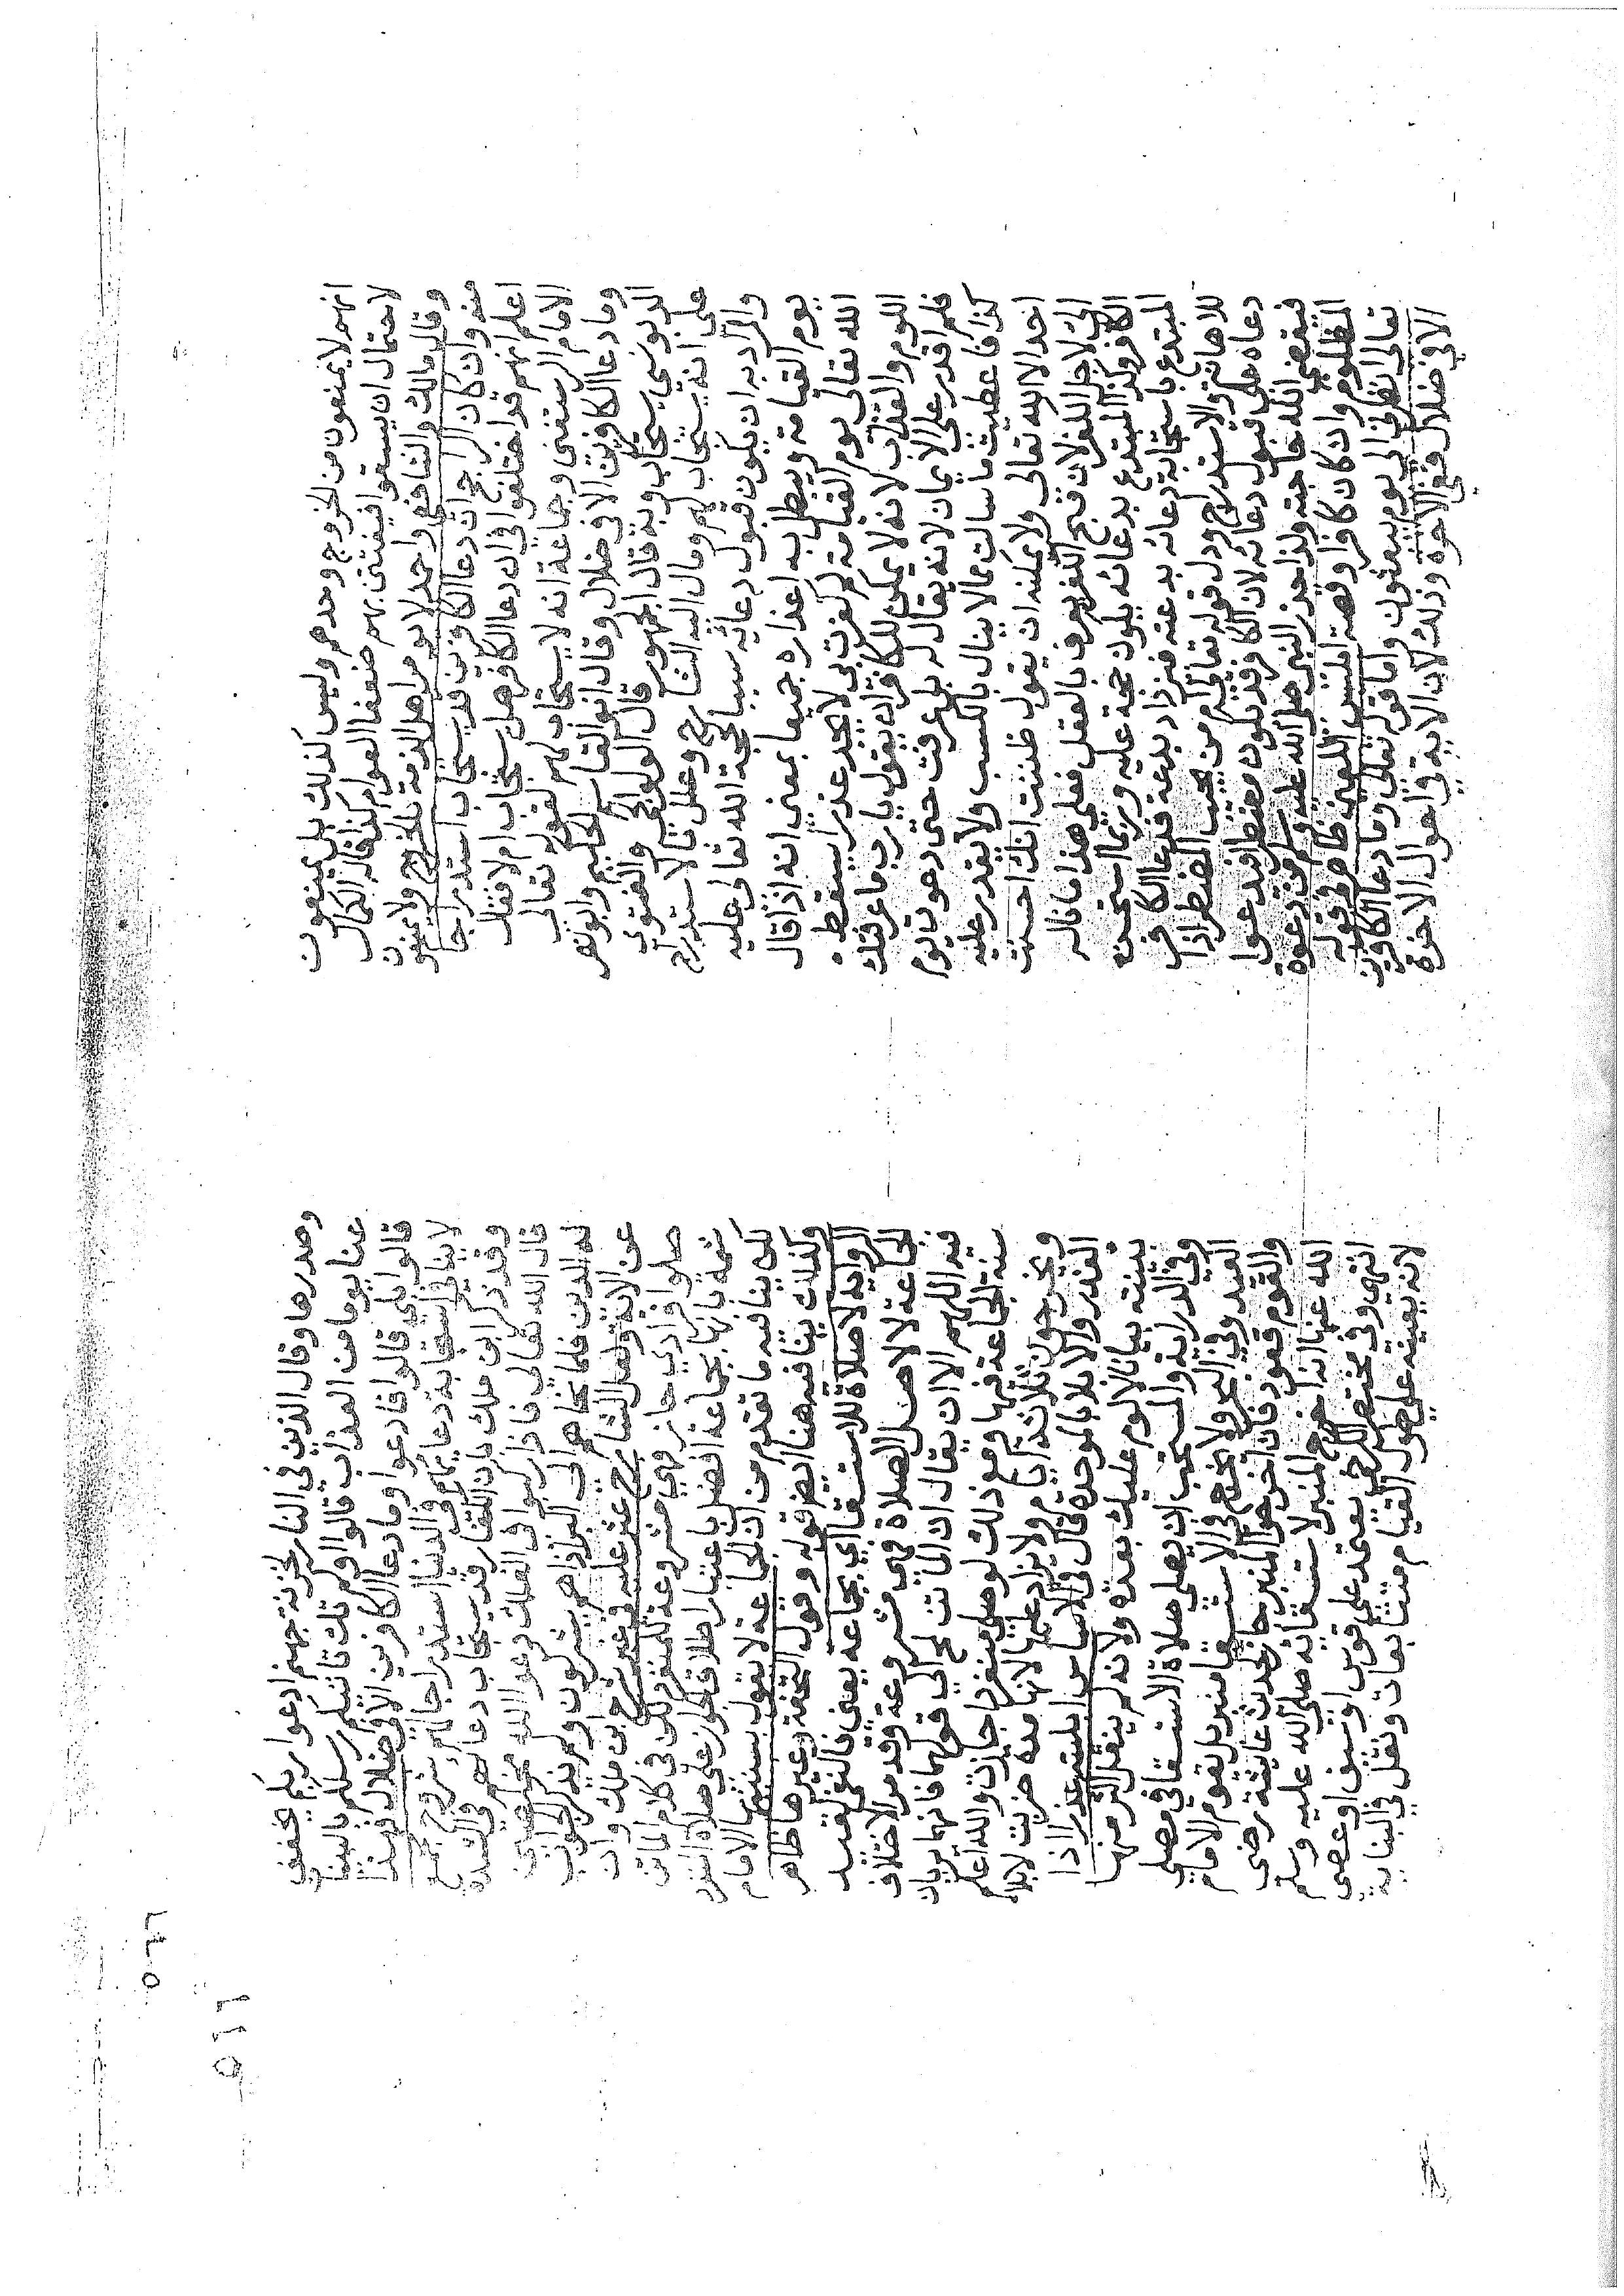 انهم لا يمنعون من الخروج وحدهم وليس كذلك بل يمنعون
لاحتمال ان يسقوا فيفتتن بهم ضعفا العوام كذا قاله الكمال
وقال مالك والشافعي واحمد لا يومر اهل الذمة بالخروج ولا يمنعون
منه وان كان الراجح ان دعا الكافرين قد يستجاب استدراجا
اعلم انهم قد اختلفوا في ان دعا الكافر هل يستجاب ام لا فنقل
الامام الرستغفني وجماعة انه لا يستجاب لهم لقوله تعالى
وما دعا الكافرين الا في ضلال وقال ابو القاسم الحكيم وابو نصر
الدبوسي يستجاب وبه قال الجمهور قال الولوالجي والفتوى
على انه يستجاب لهم ومال اليه الشارح وعلل بالاستدراج
والمراد به ان يكون قبول دعائه سببا لحجة الله تعالى عليه
يوم القيامة ويبطل به اعذاره جميعا بمعنى انه اذا قال
الله تعالى يوم القيامة لم كفرت بي لا يجد عذرا يسقط
اللوم والعذاب لانه لا يمكن للكافر ان يقول يا رب ما عرفتك
فلم اقدر على الايمان لانه يقال له بل عرفت حتى دعوت يا يوم
كذا فاعطيت ما سالت مما لا ينال بالكسب ولا يقدر عليه
احد الا الله تعالى ولا يمكنه ان يقول ظننت انك احسنت
الي لاجل الكفر لان قبح الكفر يعرف بالعقل فعلى هذا ما ناله
الكافر وكذا المبتدع بدعائه يكون حجة عليه وربما استحسن
المبتدع باستجابة دعائه بدعته فيزداد بدعة فدعا الكافر
للاهانة والاستدراج ودل قوله تعالى ام من يجيب المضطر اذا
دعاه على قبول دعائه لان الكافر قد يكون مضطرا فيدعوا
فيقضي الله حاجته ولذا حذر النبي صلى الله عليه وسلم من دعوة
المظلوم وان كان كافرا وقصة ابليس اللعين ظاهرة في قوله
تعالى انظرني الى يوم يبعثون واما قوله تعالى وما دعا الكافرين
الا في ضلال ففي الاخرة وذلك لان الاية في احوال الاخرة
وصدرها وقال الذين في النار لخزنة جهنم ادعوا ربكم يخفف
عنا يوما من العذاب قالوا اولم تك تاتيكم رسلكم بالبينات
قالوا بلى قالوا فادعوا وما دعا الكافرين الا في ضلال فهذا
لا ينافي استجابة دعائهم في الدنيا استدراجا لهم
وقد ذكر ابن ملك بان الكفار قد يستجاب دعائهم في الشدة
قال الله تعالى فاذا ركبوا في الفلك دعوا الله مخلصين
له الدين فلما نجاهم الى البر اذا هم يشركون ولم يذكر الجواب
عن الاية ولعل الشارح عثر عليه في غير شرح ابن ملك وان
صلوا فرادى جاز فهي مشروعة للمنفرد لكن في كلام الماتن
ثمة بانها بجماعة افضل باعتبار اطلاق الجواز على صلاة المنفرد
لكن ينافيه ما تقدم من ان الجماعة لا تقول بسنيتها الامام
وكذلك ينافيه هنا ايضا قوله وقول التحفة وغيرها ظاهر
الرواية لا صلاة للاستسقا اي بجماعة يعني فالنفي لقيد
الجماعة لا لاصل الصلاة فهي مشروعة وقد مر الاختلاف
فيه اللهم الا ان يقال ان الماتن نحا الى قولهما فانهما يريان
سنة الجماعة فيها ومع ذلك لو صلى منفردا جازت والله اعلم
ويخرجون ثلاثة ايام ولا يزاد عليها لانها مدة ضربت لابلاء
العذر والابلا بالموحدة قال في الاساس ابليته عذرا اذا
بينته بيانا لا لوم عليك بعده ولانه لم ينقل اكثر منها
وفي الدراية والمستحب ان يصلي صلاة الاستسقا في مصلى
العيد وفي البحر ولا يخرج في الاستسقا منبر بل يقوم الامام
والقوم قعود فان اخرجوا المنبر جاز لحديث عائشة رضي
الله عنها انه اخرج المنبر لاستسقائه صلى الله عليه وسلم
انتهى وفي مختصر الكرخي يعتمد على قوس او سيف او عصى
لانه يعينه على طول القيام متتابعات ونقل في البناية